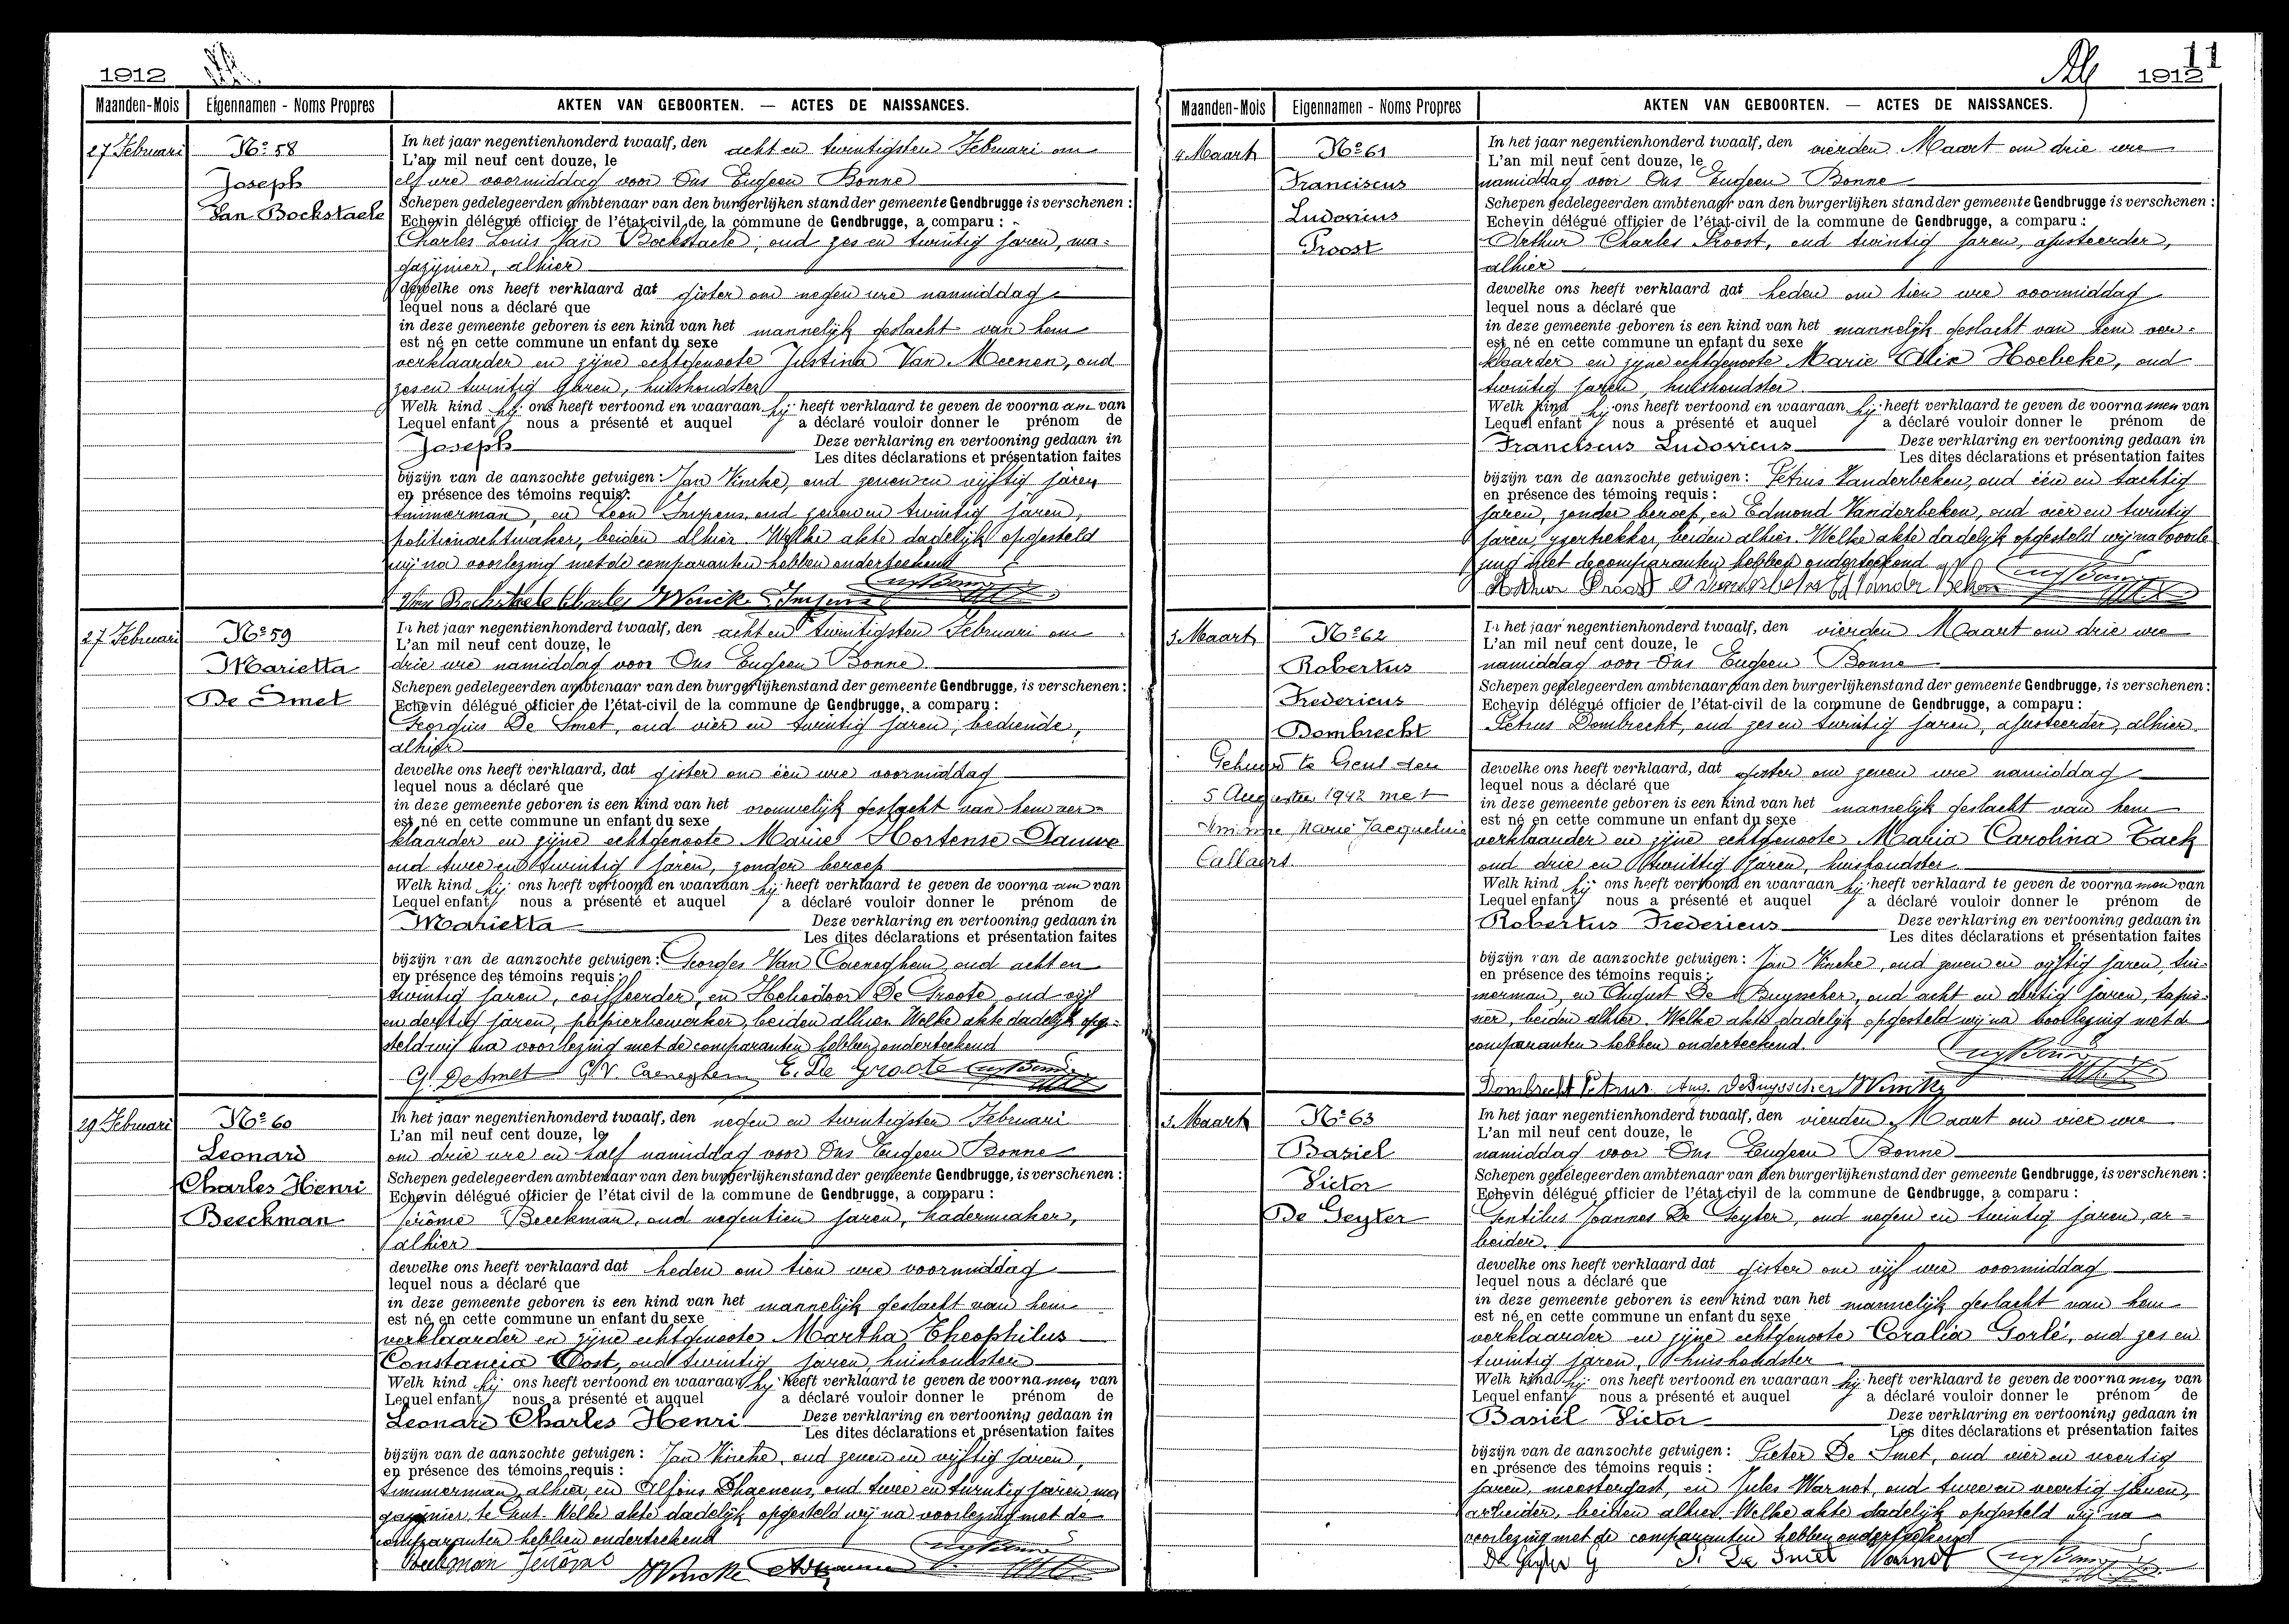 1912
Maanden-Mois Eigennamen - Noms Propres AKTEN VAN GEBOORTEN. — ACTES DE NAISSANCES.
27 Februari
Nº 58
Joseph
Van Bockstaele
In het jaar negentienhonderd twaalf, den acht en twintigsten Februari om
L'an mil neuf cent douze, le
elf ure voormiddag voor Ons Eugeen Bonne
Schepen gedelegeerden ambtenaar van den burgerlijken stand der gemeente Gendbrugge is verschenen :
Echevin délégué officier de l'état-civil de la commune de Gendbrugge, a comparu :
Charles Louis Van Bockstaele, oud zes en twintig jaren, ma-
gazijnier, alhier
dewelke ons heeft verklaard dat gister om negen ure namiddag
lequel nous a déclaré que
in deze gemeente geboren is een kind van het mannelijk geslacht van hem
est né en cette commune un enfant du sexe
verklaarder en zijne echtgenoote Justina Van Meenen, oud
zes en twintig jaren, huishoudster
Welk kind hij ons heeft vertoond en waaraan hij heeft verklaard te geven de voornaam van
Lequel enfant nous a présenté et auquel a déclaré vouloir donner le prénom de
Joseph Deze verklaring en vertooning gedaan in
Les dites déclarations et présentation faites
bijzijn van de aanzochte getuigen : Jan Vincke, oud zeven en vijftig jaren
en présence des témoins requis :
timmerman, en Leon Impens, oud zeven en twintig jaren,
politienachtwaker, beiden alhier. Welke akte dadelijk opgesteld
wij na voorlezing met de comparanten hebben onderteekend
Van Bockstaele Charles JVincke Impens
27 Februari
Nº 59
Marietta
De Smet
In het jaar negentienhonderd twaalf, den acht en twintigsten Februari om
L'an mil neuf cent douze, le
drie ure namiddag voor Ons Eugeen Bonne
Schepen gedelegeerden ambtenaar van den burgerlijkenstand der gemeente Gendbrugge, is verschenen :
Echevin délégué officier de l'état-civil de la commune de Gendbrugge, a comparu :
Georgius De Smet, oud vier en twintig jaren, bediende,
alhier
dewelke ons heeft verklaard, dat gister om één ure voormiddag
lequel nous a déclaré que
in deze gemeente geboren is een kind van het vrouwelijk geslacht van hem ver-
est né en cette commune un enfant du sexe
klaarder en zijne echtgenoote Marie Hortense Dauwe
oud twee en twintig jaren, zonder beroep
Welk kind hij ons heeft vertoond en waaraan hij heeft verklaard te geven de voornaam van
Lequel enfant nous a présenté et auquel a déclaré vouloir donner le prénom de
Marietta Deze verklaring en vertooning gedaan in
Les dites déclarations et présentation faites
bijzijn van de aanzochte getuigen : Georges Van Caeneghem, oud acht en
en présence des témoins requis :
twintig jaren, coiffeerder, en Heliodoor De Groote, oud vijf
en dertig jaren, papierbewerker, beiden alhier. Welke akte dadelijk opge-
steld wij na voorlezing met de comparanten hebben onderteekend
G. DeSmet G. V. Caeneghem E. De Groote
29 Februari
Nº 60
Leonard
Charles Henri
Beeckman
In het jaar negentienhonderd twaalf, den negen en twintigsten Februari
L'an mil neuf cent douze, le
om drie ure en half namiddag voor Ons Eugeen Bonne
Schepen gedelegeerden ambtenaar van den burgerlijkenstand der gemeente Gendbrugge, is verschenen :
Echevin délégué officier de l'état civil de la commune de Gendbrugge, a comparu :
Jérôme Beeckman, oud negentien jaren, kadermaker,
alhier
dewelke ons heeft verklaard dat heden om tien ure voormiddag
lequel nous a déclaré que
in deze gemeente geboren is een kind van het mannelijk geslacht van hem
est né en cette commune un enfant du sexe
verklaarder en zijne echtgenoote Martha Theophilus
Constancia Oost, oud twintig jaren, huishoudster
Welk kind hij ons heeft vertoond en waaraan hij heeft verklaard te geven de voornamen van
Lequel enfant nous a présenté et auquel a déclaré vouloir donner le prénom de
Leonard Charles Henri Deze verklaring en vertooning gedaan in
Les dites déclarations et présentation faites
bijzijn van de aanzochte getuigen : Jan Vincke, oud zeven en vijftig jaren,
en présence des témoins requis :
timmerman, alhier, en Alfons Dhaenens, oud twee en twintig jaren ma
gazijnier, te Gent. Welke akte dadelijk opgesteld wij na voorlezing met de
comparanten hebben onderteekend
Beekman Jerôme JVincke
11
1912
Maanden-Mois Eigennamen - Noms Propres AKTEN VAN GEBOORTEN. — ACTES DE NAISSANCES.
4 Maart
Nº 61
Franciscus
Ludovicus
Proost
In het jaar negentienhonderd twaalf, den vierden Maart om drie ure
L'an mil neuf cent douze, le
namiddag voor Ons Eugeen Bonne
Schepen gedelegeerden ambtenaar van den burgerlijken stand der gemeente Gendbrugge is verschenen :
Echevin délégué officier de l'état-civil de la commune de Gendbrugge, a comparu :
Arthur Charles Proost, oud twintig jaren, ajusteerder,
alhier
dewelke ons heeft verklaard dat heden om tien ure voormiddag
lequel nous a déclaré que
in deze gemeente geboren is een kind van het mannelijk geslacht van hem ver-
est né en cette commune un enfant du sexe
klaarder en zijne echtgenoote Marie Alix Hoebeke, oud
twintig jaren, huishoudster
Welk kind hij ons heeft vertoond en waaraan hij heeft verklaard te geven de voornamen van
Lequel enfant nous a présenté et auquel a déclaré vouloir donner le prénom de
Franciscus Ludovicus Deze verklaring en vertooning gedaan in
Les dites déclarations et présentation faites
bijzijn van de aanzochte getuigen : Petrus Vanderbeken, oud één en tachtig
en présence des témoins requis :
jaren, zonder beroep, en Edmond Vanderbeken, oud vier en twintig
jaren, ijzertrekker, beiden alhier. Welke akte dadelijk opgesteld wij na voorle
zing met de comparanten hebben onderteekend
Arthur Proost P Vanderbeken Ed Vander Beken
3 Maart
Nº 62
Robertus
Fredericus
Dombrecht
Gehuwd te Gent den
5 Augustus 1942 met
Marie Jacqueline
Callaert
In het jaar negentienhonderd twaalf, den vierden Maart om drie ure
L'an mil neuf cent douze, le
namiddag voor Ons Eugeen Bonne
Schepen gedelegeerden ambtenaar van den burgerlijkenstand der gemeente Gendbrugge, is verschenen :
Echevin délégué officier de l'état-civil de la commune de Gendbrugge, a comparu :
Petrus Dombrecht, oud zes en twintig jaren, ajusteerder, alhier
dewelke ons heeft verklaard, dat gister om zeven ure namiddag
lequel nous a déclaré que
in deze gemeente geboren is een kind van het mannelijk geslacht van hem
est né en cette commune un enfant du sexe
verklaarder en zijne echtgenoote Maria Carolina Tack
oud drie en twintig jaren, huishoudster
Welk kind hij ons heeft vertoond en waaraan hij heeft verklaard te geven de voornamen van
Lequel enfant nous a présenté et auquel a déclaré vouloir donner le prénom de
Robertus Fredericus Deze verklaring en vertooning gedaan in
Les dites déclarations et présentation faites
bijzijn van de aanzochte getuigen : Jan Vincke, oud zeven en vijftig jaren, tim-
en présence des témoins requis :
merman, en August De Buysscher, oud acht en dertig jaren, tapis-
sier, beiden alhier. Welke akte dadelijk opgesteld wij na voorlezing met de
comparanten hebben onderteekend.
Dombrecht Petrus Aug. DeBuysscher JVincke
3 Maart
Nº 63
Basiel
Victor
De Geyter
In het jaar negentienhonderd twaalf, den vierden Maart om vier ure
L'an mil neuf cent douze, le
namiddag voor Ons Eugeen Bonne
Schepen gedelegeerden ambtenaar van den burgerlijkenstand der gemeente Gendbrugge, is verschenen :
Echevin délégué officier de l'état-civil de la commune de Gendbrugge, a comparu :
Gentilus Joannes De Geyter, oud negen en twintig jaren, ar-
beider.
dewelke ons heeft verklaard dat gister om vijf ure voormiddag
lequel nous a déclaré que
in deze gemeente geboren is een kind van het mannelijk geslacht van hem
est né en cette commune un enfant du sexe
verklaarder en zijne echtgenoote Coralia Gorlé, oud zes en
twintig jaren, huishoudster
Welk kind hij ons heeft vertoond en waaraan hij heeft verklaard te geven de voornamen van
Lequel enfant nous a présenté et auquel a déclaré vouloir donner le prénom de
Basiel Victor Deze verklaring en vertooning gedaan in
Les dites déclarations et présentation faites
bijzijn van de aanzochte getuigen : Pieter De Smet, oud vier en veertig
en présence des témoins requis :
jaren, meestergast, en Jules Warnot, oud twee en veertig jaren,
arbeider, beiden alhier. Welke akte dadelijk opgesteld wij na
voorlezing met de comparanten hebben onderteekend
De Geyter G P. De Smet Warnot